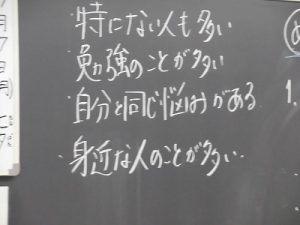 ・特にない人も多い
・勉強のことが多い
・自分と同じ悩みがある
・身近な人のことが多い
月
7
日
(月)
1.